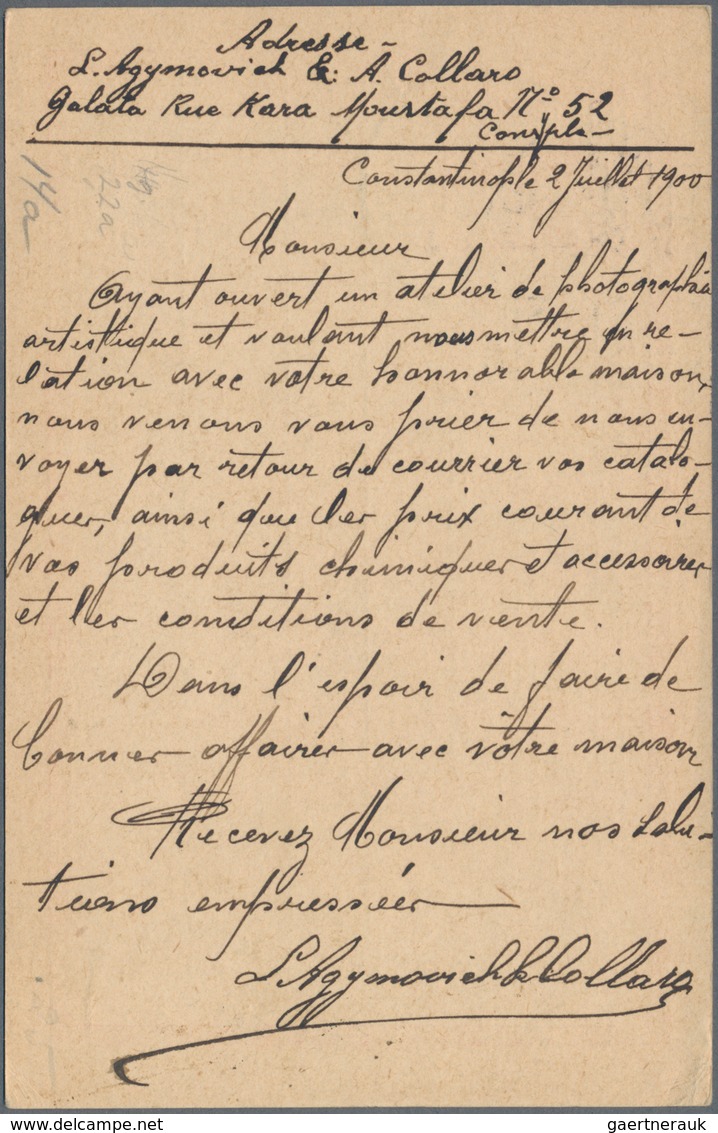 Adresse -
L. Agymovich & A. Collaro
Galata Rue Kara Moustafa No 52
Consple -
Constantinople 2 Juillet 1900
14a
22a
Monsieur
Ayant ouvert un atelier de photographie
artistique et voulant nous mettre en re-
lation avec vôtre honnorable maison,
nous venons vous prier de nous en-
voyer par retour de courrier vos catalo-
gues, ainsi que les prix courant de
vos produits chimiques et accessoires
et les conditions de vente.
Dans l'espoir de faire de
bonnes affaires avec vôtre maison
Recevez Monsieur nos salu-
tions empressées
L Agymovich & Collaro
gaertnerauk